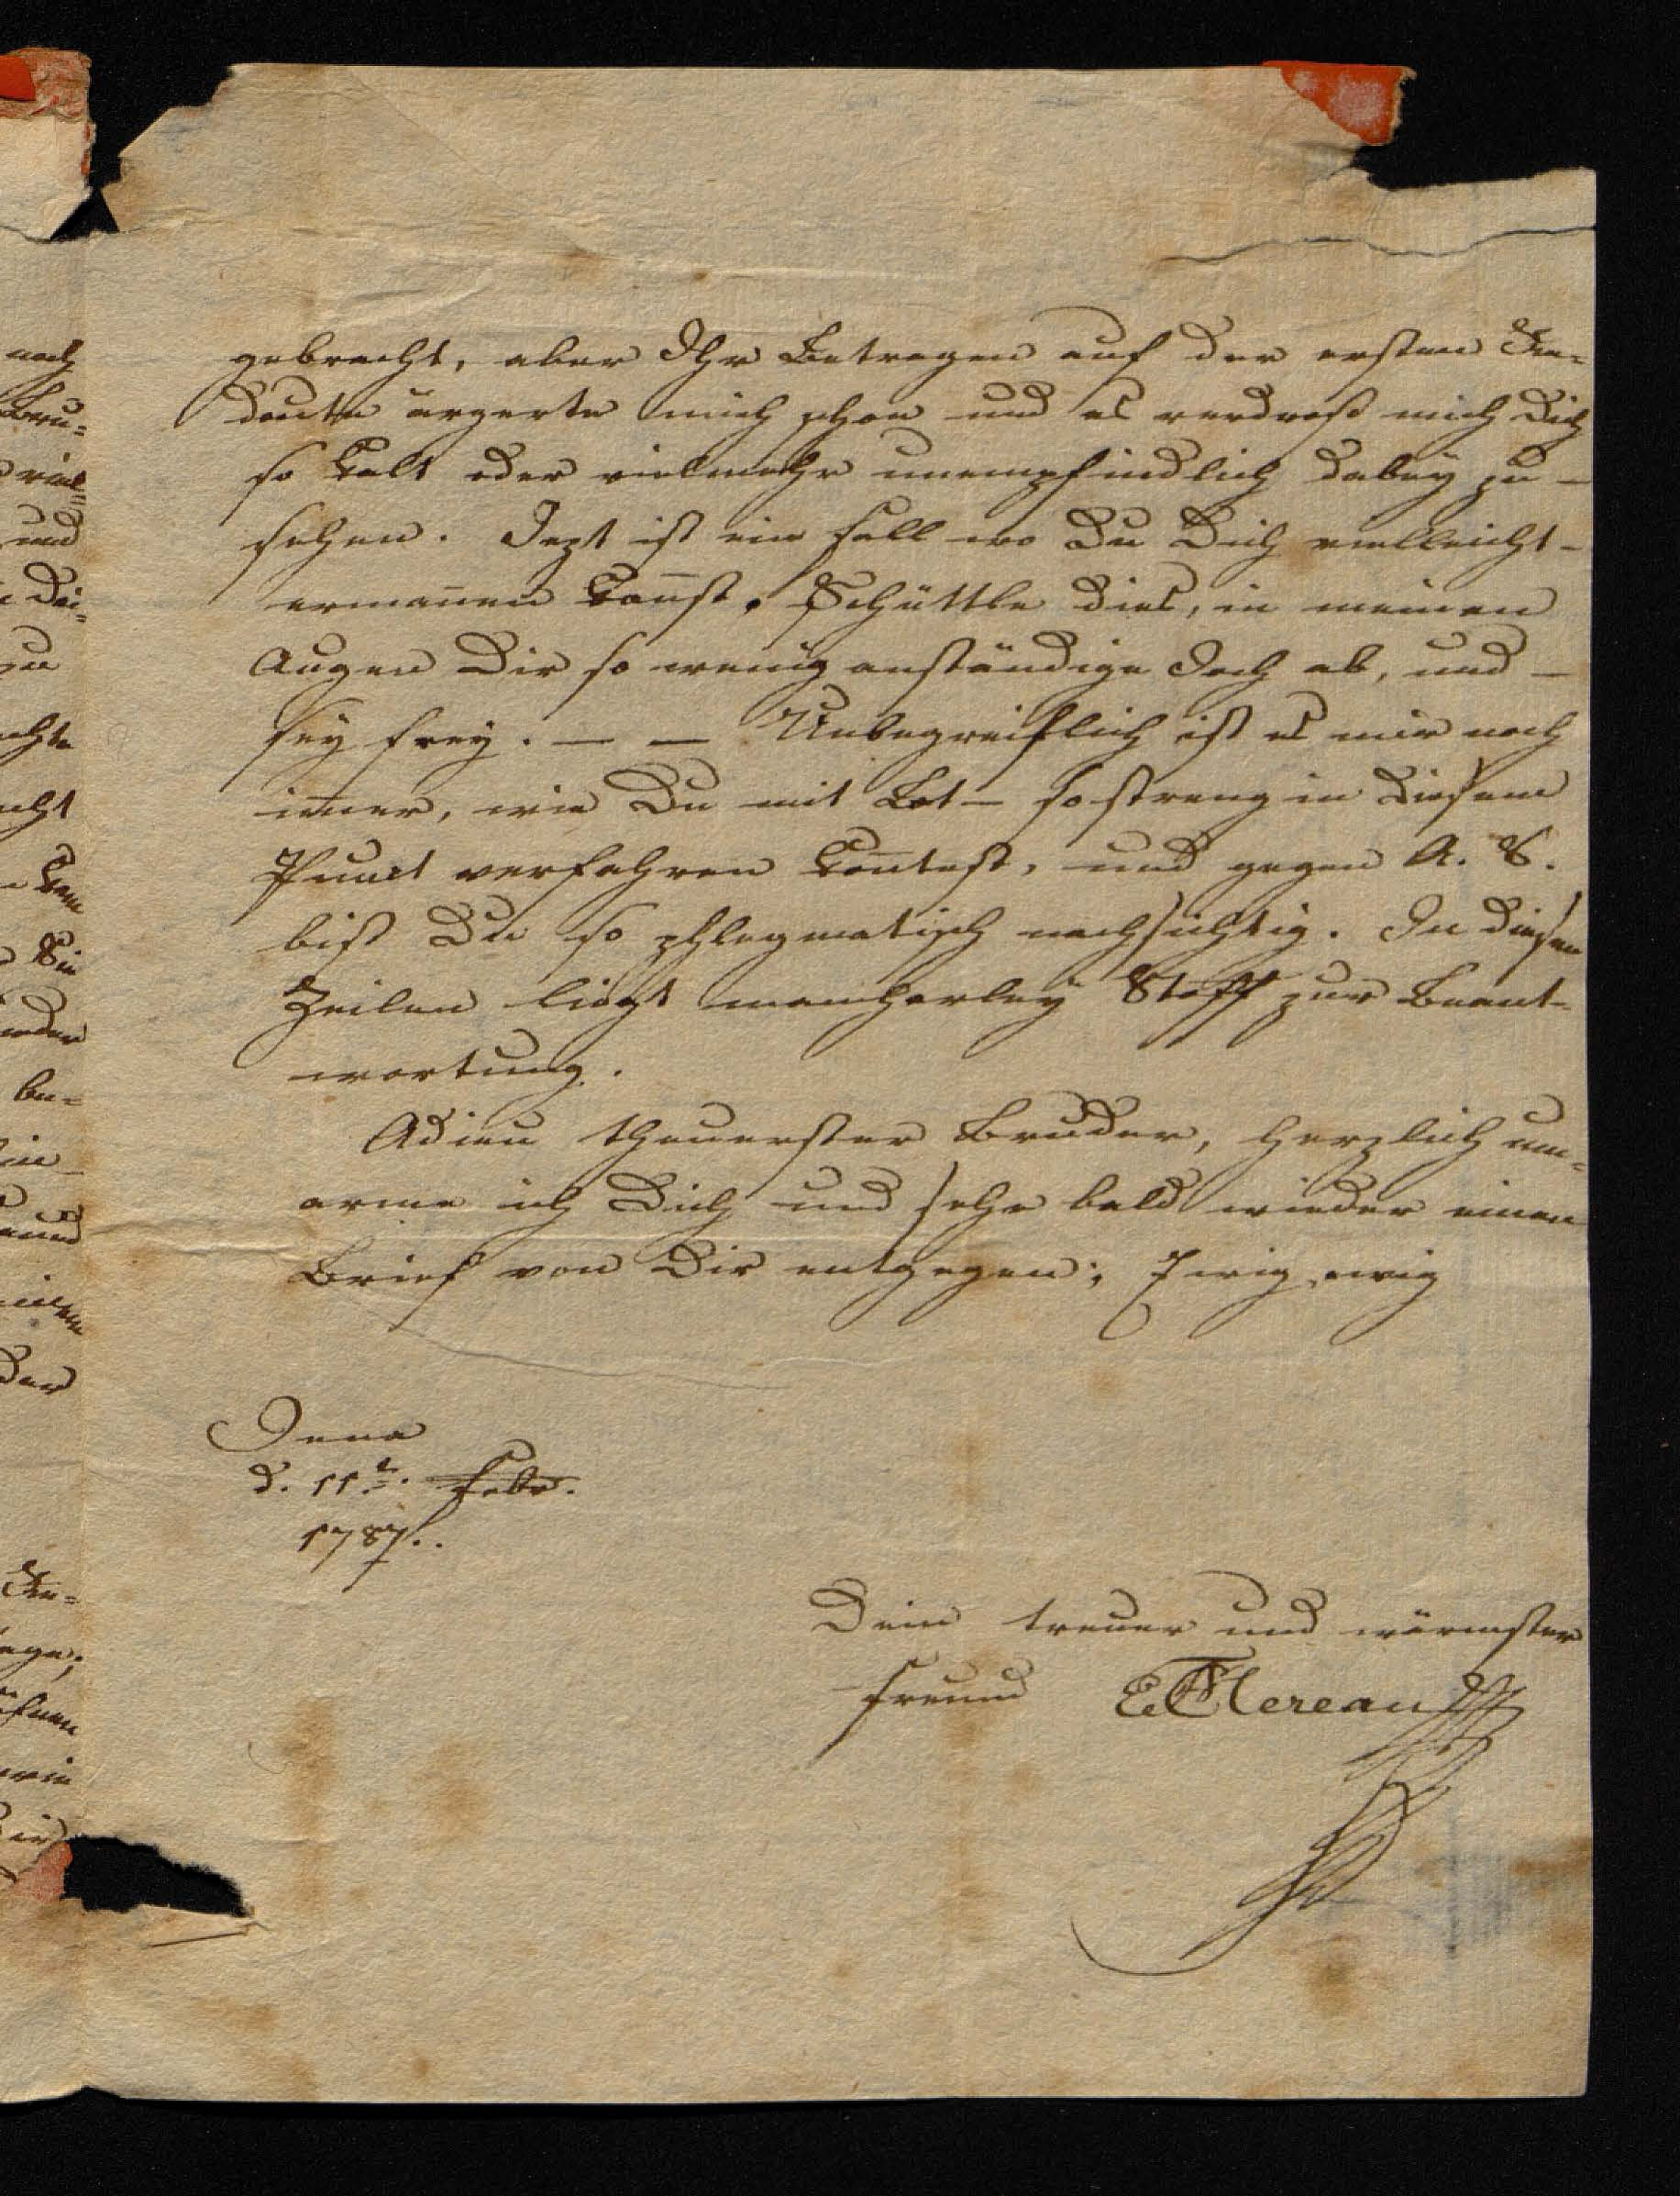 gebracht, aber Ihr Betragen auf der ersten Re-
doute ärgerte mich schon und es verdroß mich Dich
so kalt oder vielmehr unempfindlich dabey zu -
sehen. Jezt ist ein Fall wo Du Dich vielleicht -
ermañen kañst. Schüttle dies, in meinen
Augen Dir so wenig anständige Joch ab, und -
sey frey. — — Unbegreiflich ist es mir noch
im̄er, wie Du mit Lot- so streng in diesem
Punct verfahren kon̄test, und gegen A. S.
bist Du so phlegmatisch nachsichtig. In diesen
Zeilen liegt mancherley Stoff zur Beant-
wortung.
Adieu theuerster Bruder, herzlich um-
arme ich Dich und sehe bald wieder einen
Brief von Dir entgegen; Ewig, ewig
Jena
d. 11t. Febr.
1787..
Dein treuer und wärmster
Freund Mereau
noch
viel-
und
Dei-
zu
cht
Sie
be-
und
der
Re-
wie